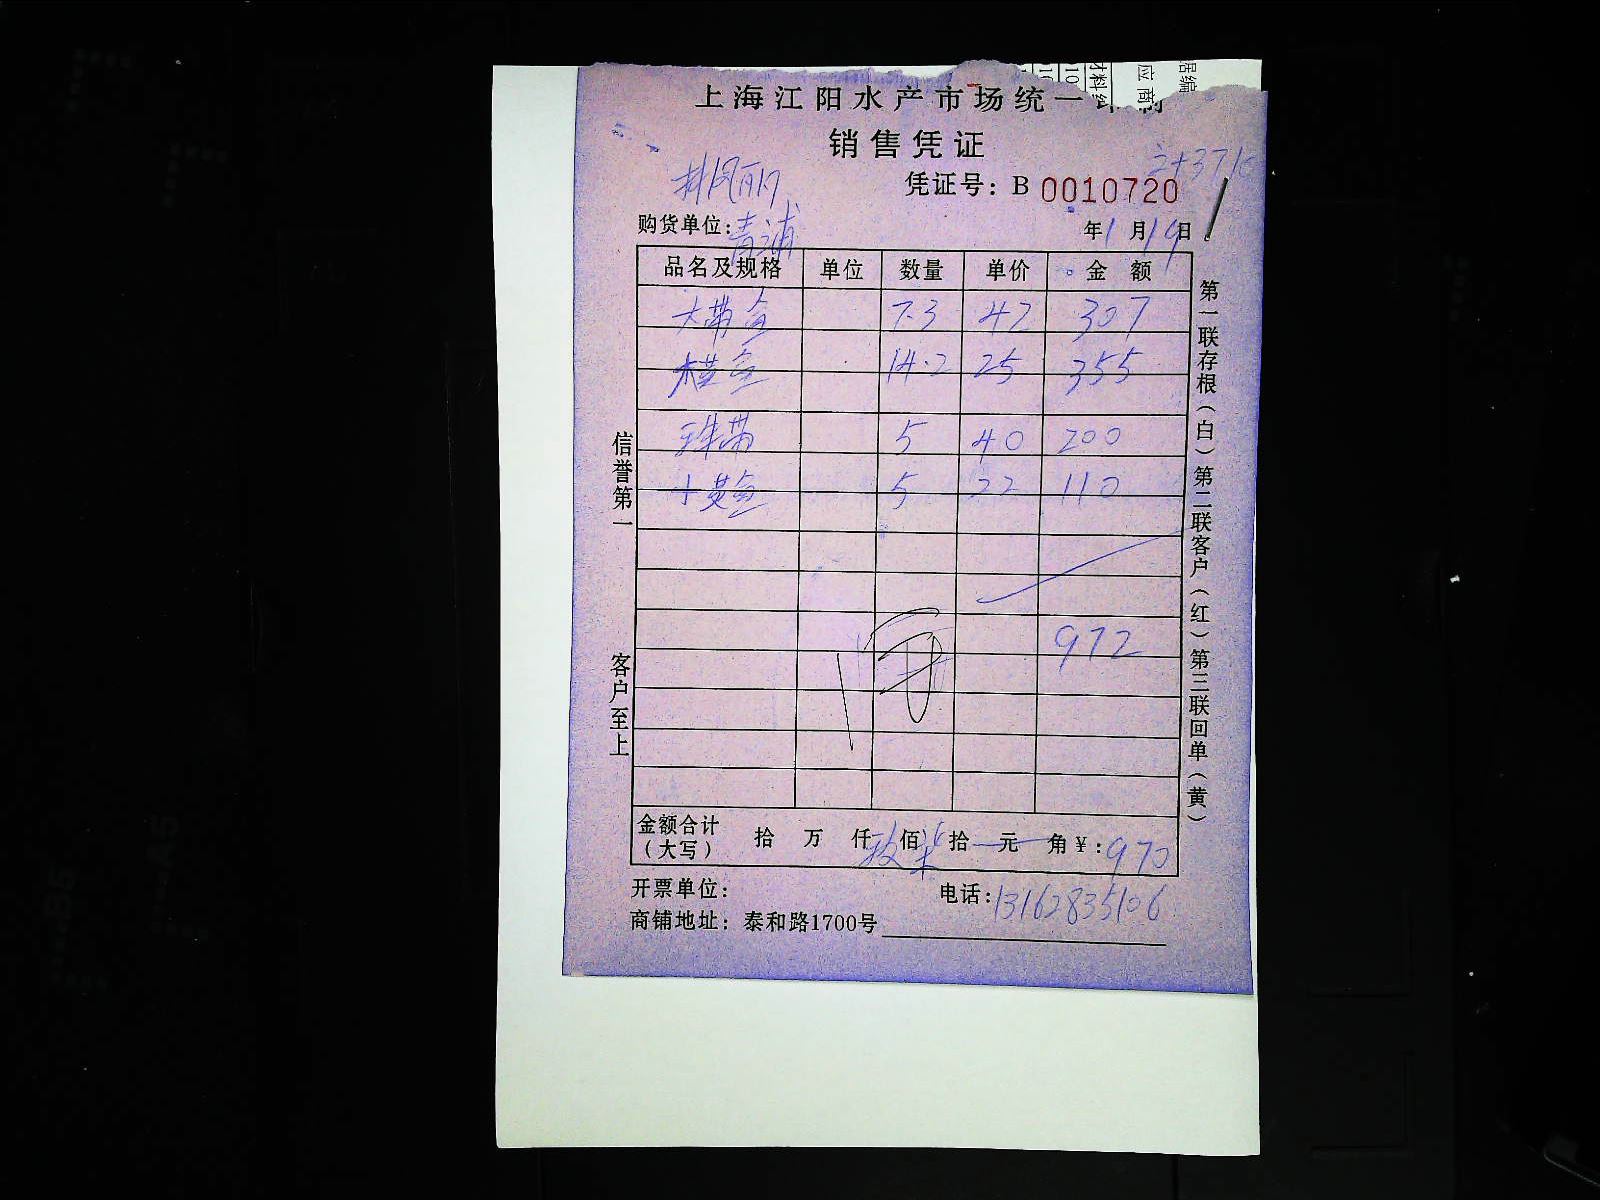 上海江阳水产市场统一
销售凭证
凭证号：B 0010720
购货单位：青浦
年1月19日
品名及规格 单位 数量 单价 金额
大带鱼 7.3 42 307
14.2 25 355
带 5 40 200
小黄鱼 5 22 110
972
金额合计（大写） 拾 万 仟 玖 佰 柒 拾 元 角 ¥：970
开票单位：
电话：13162835106
商铺地址：泰和路1700号
信誉第一
客户至上
第一联存根（白）第二联客户（红）第三联回单（黄）
居编
应商
材料
10
10